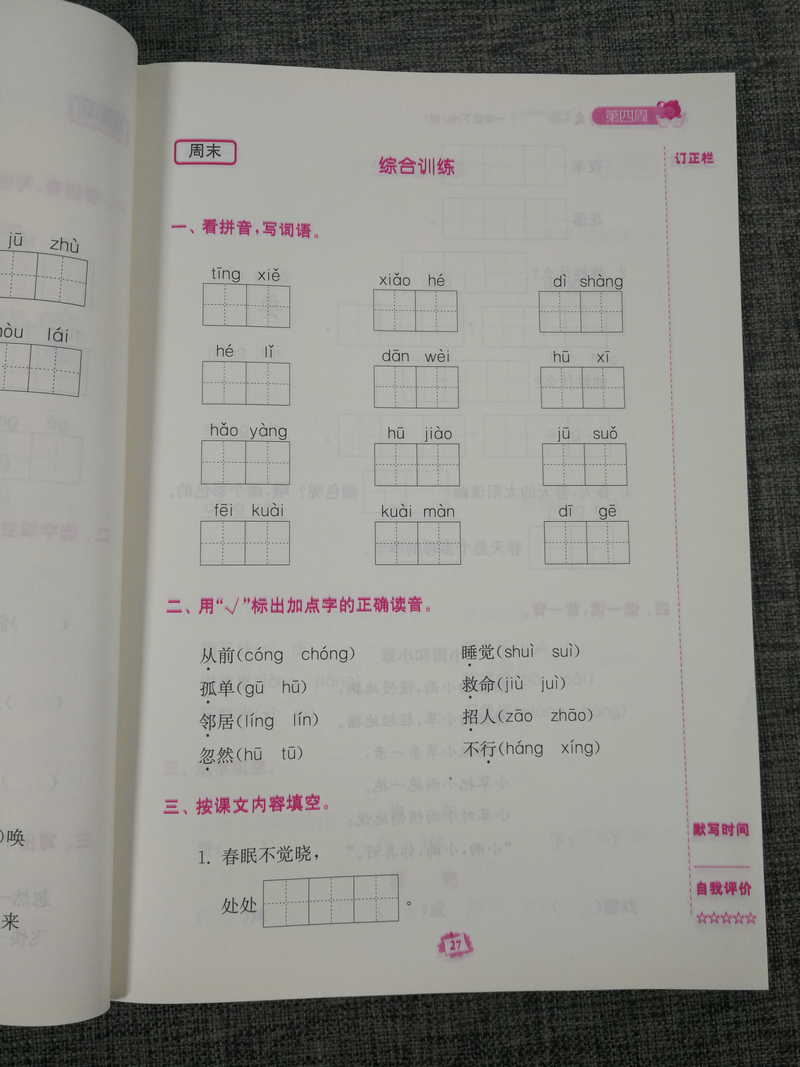 jū zhù
hòu lái
)唤
来
第四周
周末
综合训练
订正栏
一、看拼音,写词语。
tīng xiě xiǎo hé dì shàng
hé lǐ dān wèi hū xī
hǎo yàng hū jiào jū suǒ
fēi kuài kuài màn dī gē
二、用“√”标出加点字的正确读音。
从前(cóng chóng) 睡觉(shuì suì)
孤单(gū hū) 救命(jiù juì)
邻居(líng lín) 招人(zāo zhāo)
忽然(hū tū) 不行(háng xíng)
三、按课文内容填空。
1. 春眠不觉晓,
处处 。
默写时间
自我评价
☆☆☆☆☆
27